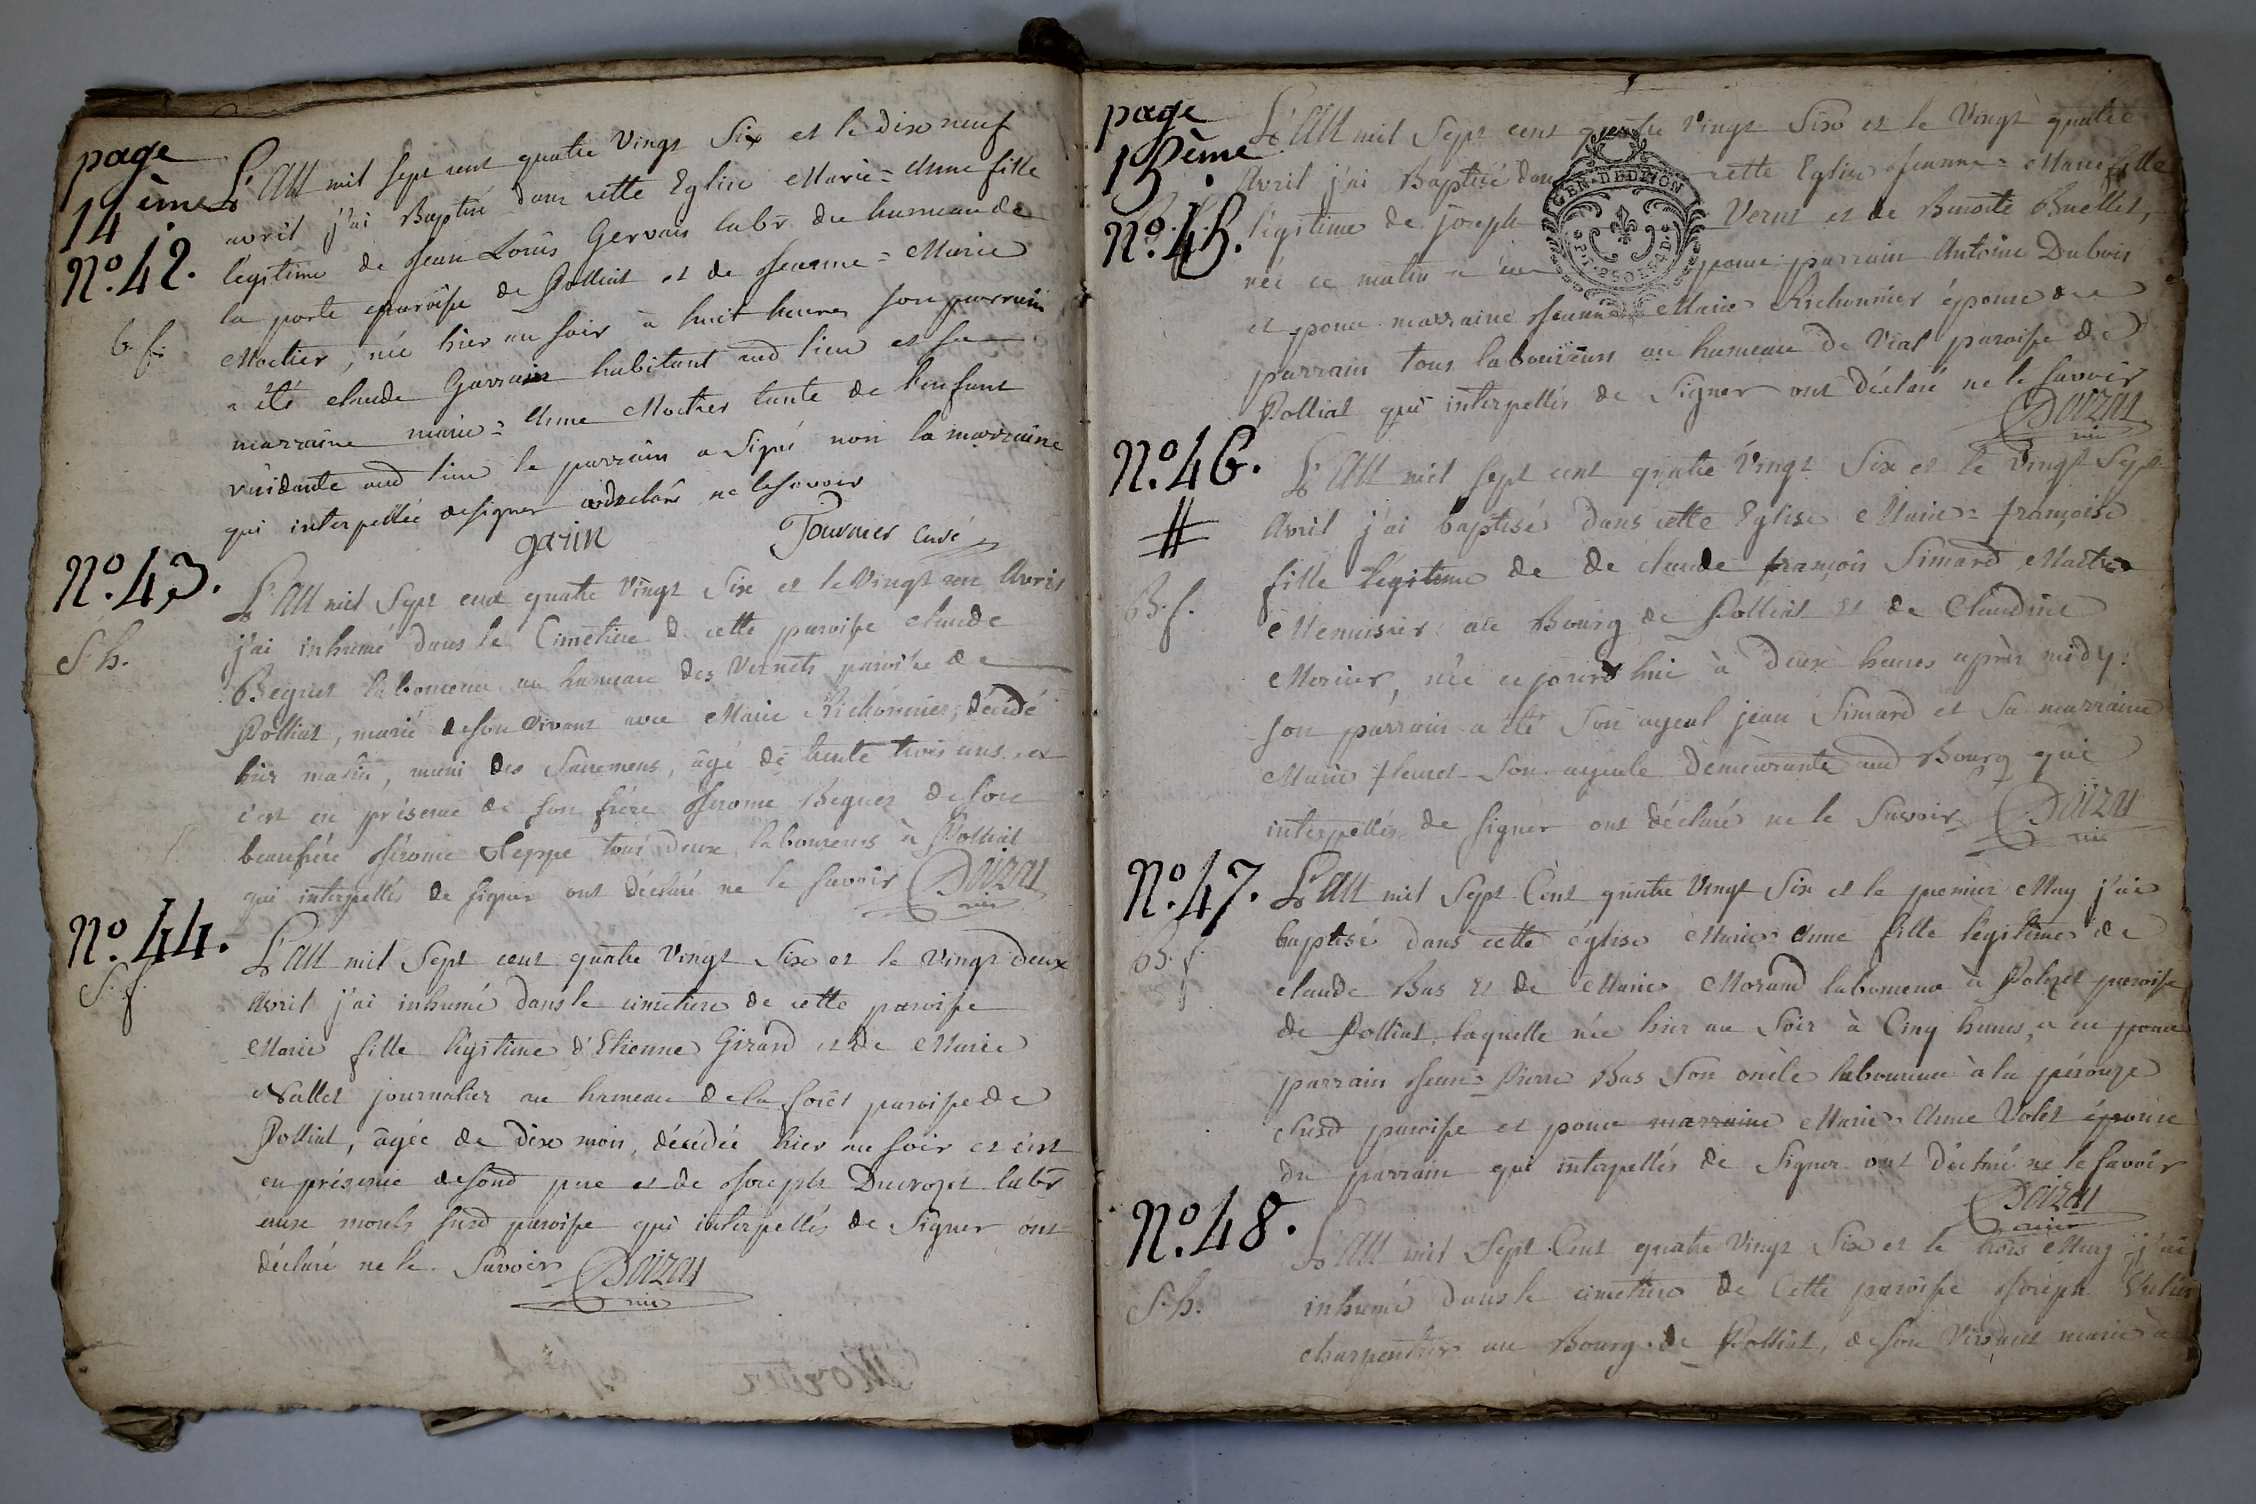 page
14ème.
N°.42.
L'An mil sept cent quatre Vingt Six et le dix neuf
avril j'ai Baptisé dans cette Eglise Marie=Anne fille
légitime de Jean Louis Gervais labr. du hameau de
la porte paroisse de Polliat et de Jeanne=Marie
b. f. Mortier, née hier au soir à huit heures son parrain
a été claude Garrain habitant aud lieu et sa
marraine marie=Anne Mortier tante de l'enfant
résidante aud lieu le parrain a Signé non la marraine
qui interpellée de signer a déclaré ne le savoir
garin Tournier curé
N°.43.
L'An mil Sept cent quatre Vingt Six et le Vingt un Avril
S. h. j'ai inhumé dans le Cimetiere de cette paroisse claude
Beguet laboureur au hameau des Vernets paroisse de
Polliat, marié de son vivant avec Marie Richonnier, décédé
hier matin, muni des Sacremens, âgé de trente trois ans. et
c'est en présence de son frère Jérome Beguet de son
beaufrère Jérome tous deux laboureurs à Polliat
qui interpellés de signer ont déclaré ne le savoir Doizat
vic
N°.44.
S. f. L'An mil Sept cent quatre Vingt Six et le Vingt deux
Avril j'ai inhumé dans le cimetiere de cette paroisse
Marie fille légitime d'Etienne Girard et de Marie
Nallet journalier au hameau de la forêt paroisse de
Polliat, agée de dix mois, décédée hier au soir et c'est
en présence de sond pere et de Joseph Ducrozet labr
aux monts susd paroisse qui interpellés de Signer ont
déclaré ne le Savoir Doizat
vic
page
15ème.
N°.45.
L'An mil Sept cent quatre Vingt Six et le Vingt quatre
Avril j'ai Baptisé dans cette Eglise Jeanne=Marie fille
légitime de joseph Vernt et de Benoite Buellet,
née ce matin a eu pour parrain Antoine Dubois
et pour marraine Jeanne Marie Richonnier épouse du
parrain tous laboureurs au hameau de Vial paroisse de
Polliat qui interpellés de Signer ont déclaré ne le savoir
Doizat
vic
GEN. DE DIJON
N°.46.
#
B. f.
L'An mil sept cent quatre Vingt Six et le Vingt Sept
Avril j'ai baptisé dans cette Eglise Marie=françoise
fille légitime de de claude françois Simard Maitre
Menuisier au Bourg de Polliat Et de Claudine
Morier, née cejourd hui à deux heures après midy.
son parrain a été Son ayeul jean Simard et Sa marraine
Marie fleuret Son ayeule demeurante aud Bourg qui
interpellés de signer ont déclaré ne le Savoir Doizat
vic
N°.47.
B. f.
L'An mil Sept Cent quatre Vingt Six et le premier May j'ai
baptisé dans cette église Marie Anne fille légitime de
claude Bas Et de Marie Morand laboureur à Polezet paroisse
de Polliat, laquelle née hier au Soir à Cinq heures, a eu pour
parrain Jean=Pierre Bas Son oncle laboureur à la pérouze
susd paroisse et pour marraine Marie Anne Volet épouse
du parrain qui interpellés de Signer ont déclaré ne le savoir
Doizat
vic
N°.48.
S. h.
L'An mil Sept Cent quatre Vingt Six et le trois May j'ai
inhumé dans le cimetiere de Cette paroisse Joseph
charpentier au Bourg de Polliat, de son Vivant marié à